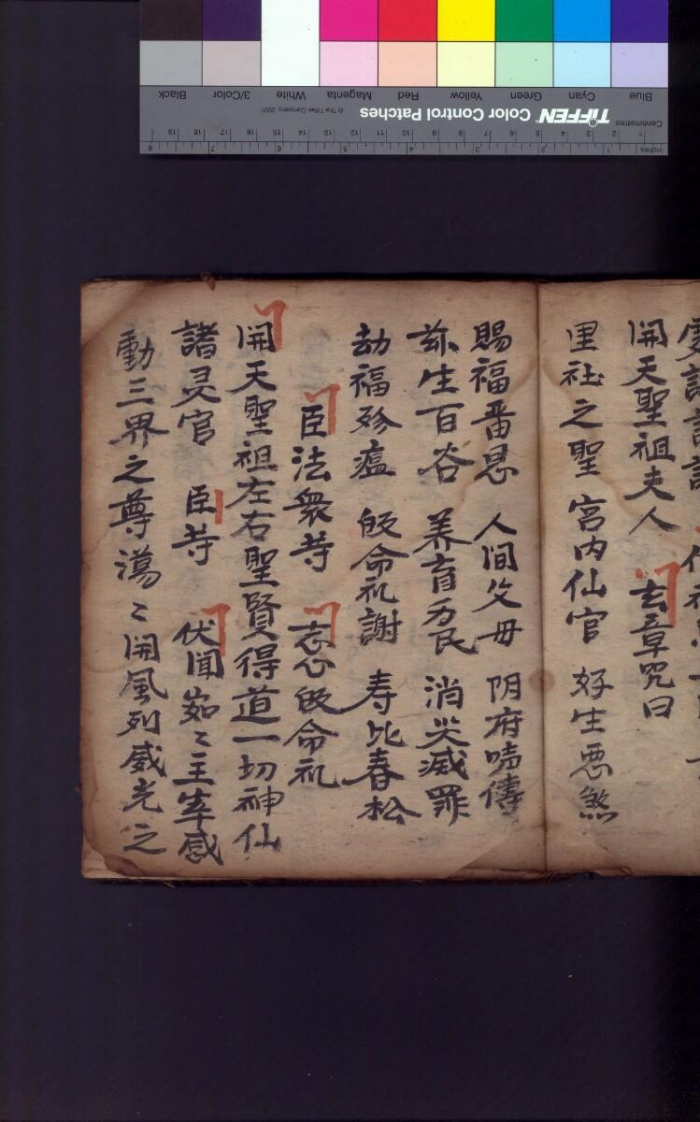 開天聖祖夫人 玄章咒曰
里社之聖 宮内仙官 好生悪煞
賜福畨恩 人间父母 阴府
㢤生百谷 养育万民 消灾减罪
劫福殄瘟 皈命礼謝 寿比春松
臣法衆䒭 志心皈命礼
開天聖祖左右聖賢得道一切神仙
諸灵官 臣䒭 伏聞 主宰感
動三界之尊 蕩〻開風列威光之
Black
3/Color
White
Magenta
Red
Yellow
Green
Cyan
Blue
© The Tiffen Company 2007
TIFFEN Color Control Patches
Centimetres
Inches